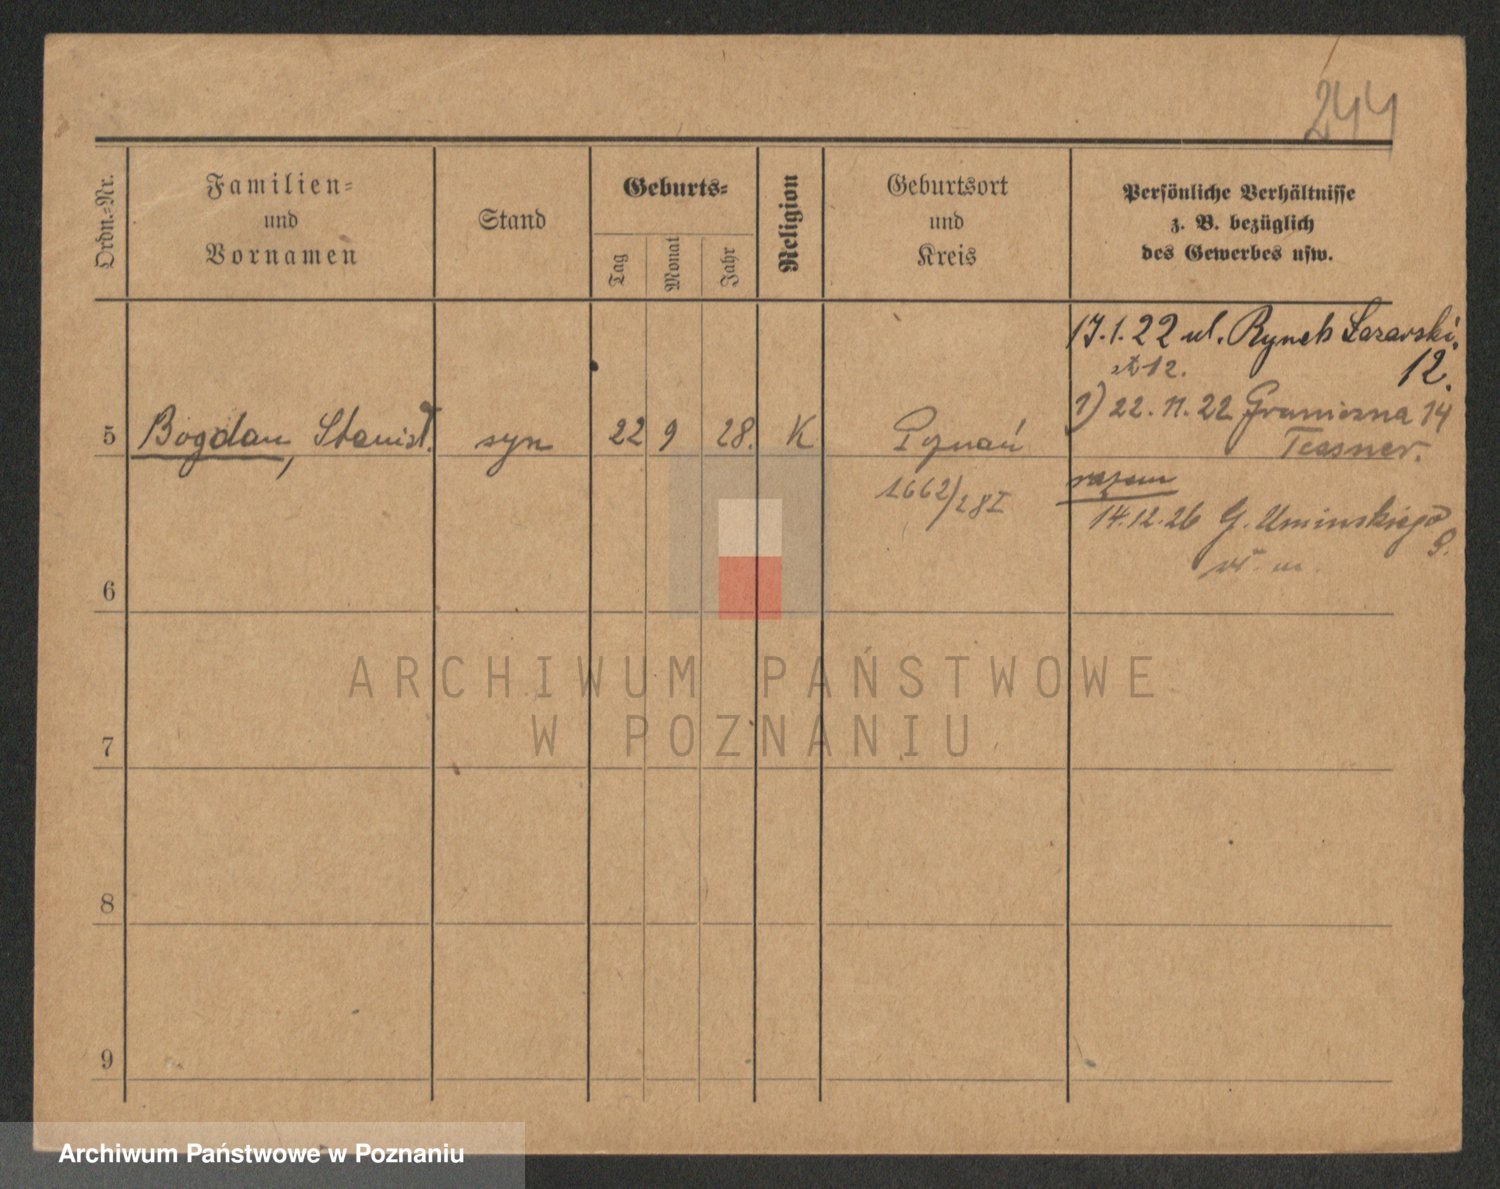 244
Ordn.-Nr.
Familien-
und
Vornamen
Stand
Geburts-
Tag
Monat
Jahr
Religion
Geburtsort
und
Kreis
Persönliche Verhältnisse
z. B. bezüglich
des Gewerbes usw.
17.1.22 ul. Rynek Łazarski
12.
12.
1) 22. 11. 22 Graniczna 14
5 Bogdan, Stanisł. syn 22 9 28. K Poznań
1662/28 I
razem
14.12.26 G. Umińskiego
6
7
8
9
ARCHIWUM PAŃSTWOWE
W POZNANIU
Archiwum Państwowe w Poznaniu